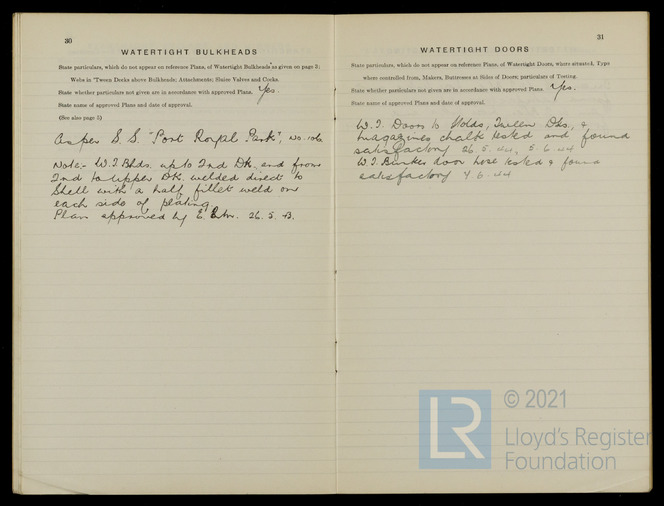 30
WATERTIGHT BULKHEADS
State particulars, which do not appear on reference Plans, of Watertight Bulkheads as given on page 2;
Webs in 'Tween Decks above Bulkheads; Attachments; Sluice Valves and Cocks.
State whether particulars not given are in accordance with approved Plans. Yes.
State name of approved Plans and date of approval.
(See also page 5)
As per S.S. "Port Royal Park", No. 106
Note:- W.T. Bhds. up to 2nd Dk. and from
2nd to Upper Dk. welded direct to
Shell with a half fillet weld on
each side of plating.
Plan approved by 26. 5. 43.
31
WATERTIGHT DOORS
State particulars, which do not appear on reference Plans, of Watertight Doors, where situated. Type
where controlled from, Makers, Buttresses at Sides of Doors; particulars of Testing.
State whether particulars not given are in accordance with approved Plans. Yes.
State name of approved Plans and date of approval.
W.T. Doors to Holds, Tween Dks, &
magazines chalk tested and found
satisfactory 26. 5. 44, 5. 6. 44
W.T. Bunker door hose tested & found
satisfactory 4 6. 44
LR
© 2021
Lloyd's Register
Foundation